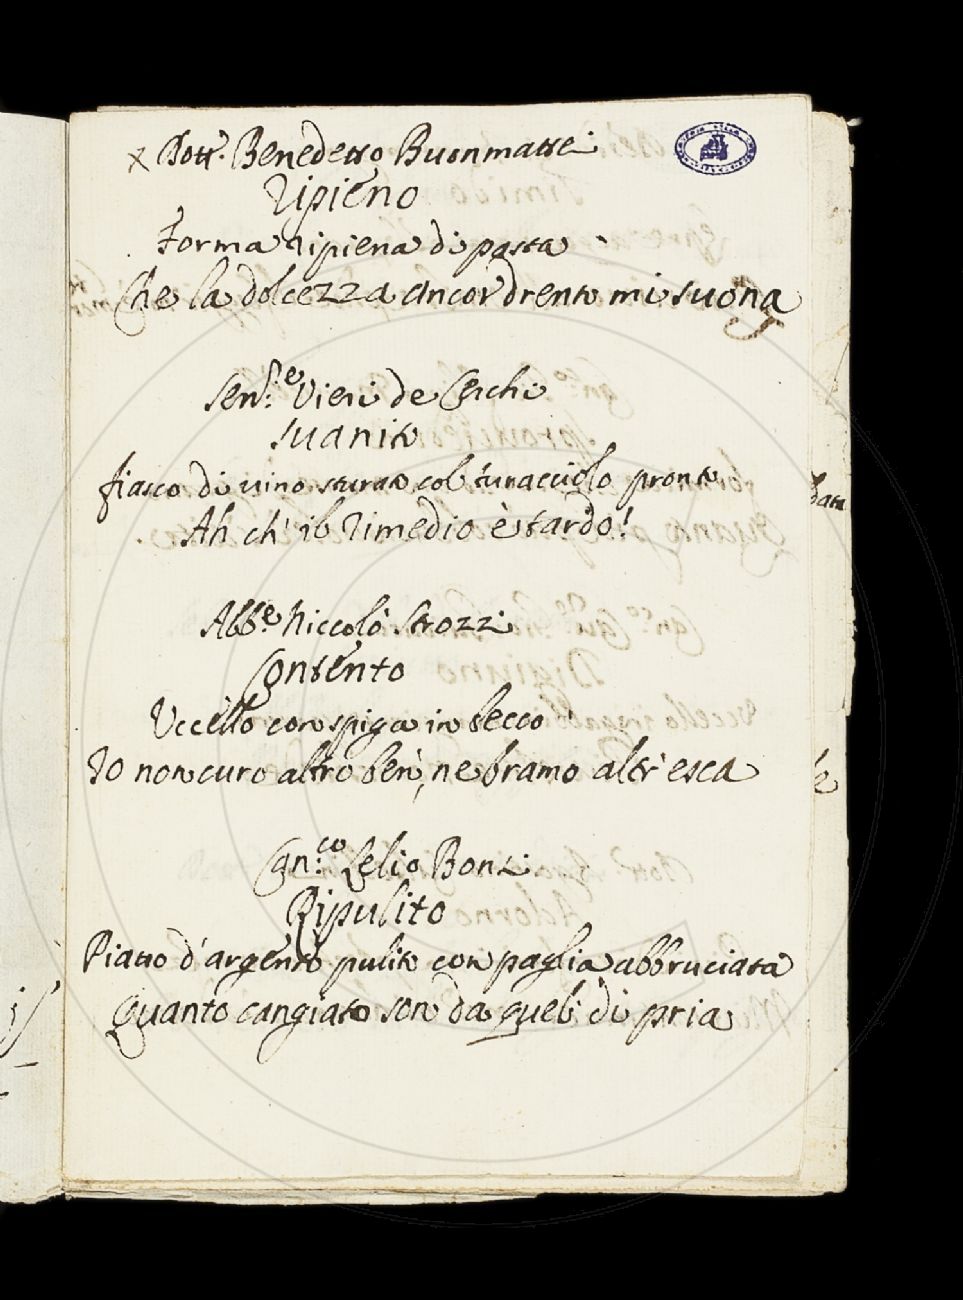 x Dott. Benedetto Buonmattei
Ripieno
Forma ripiena di pasta
Che la dolcezza ancor drento mi suona
Sen.e Vieri de Cerchi
Suanito
fiasco di vino sturato col turacciolo pronto
Ah ch' il rimedio è tardo!
Abb.e Niccolò Strozzi
Contento
Uccello con spiga in becco
Io non curo altro ben, ne bramo altr' esca
Can.co Lelio Bonsi
Ripulito
Piatto d'argento pulito con paglia abbruciata
Quanto cangiato son da quel di pria